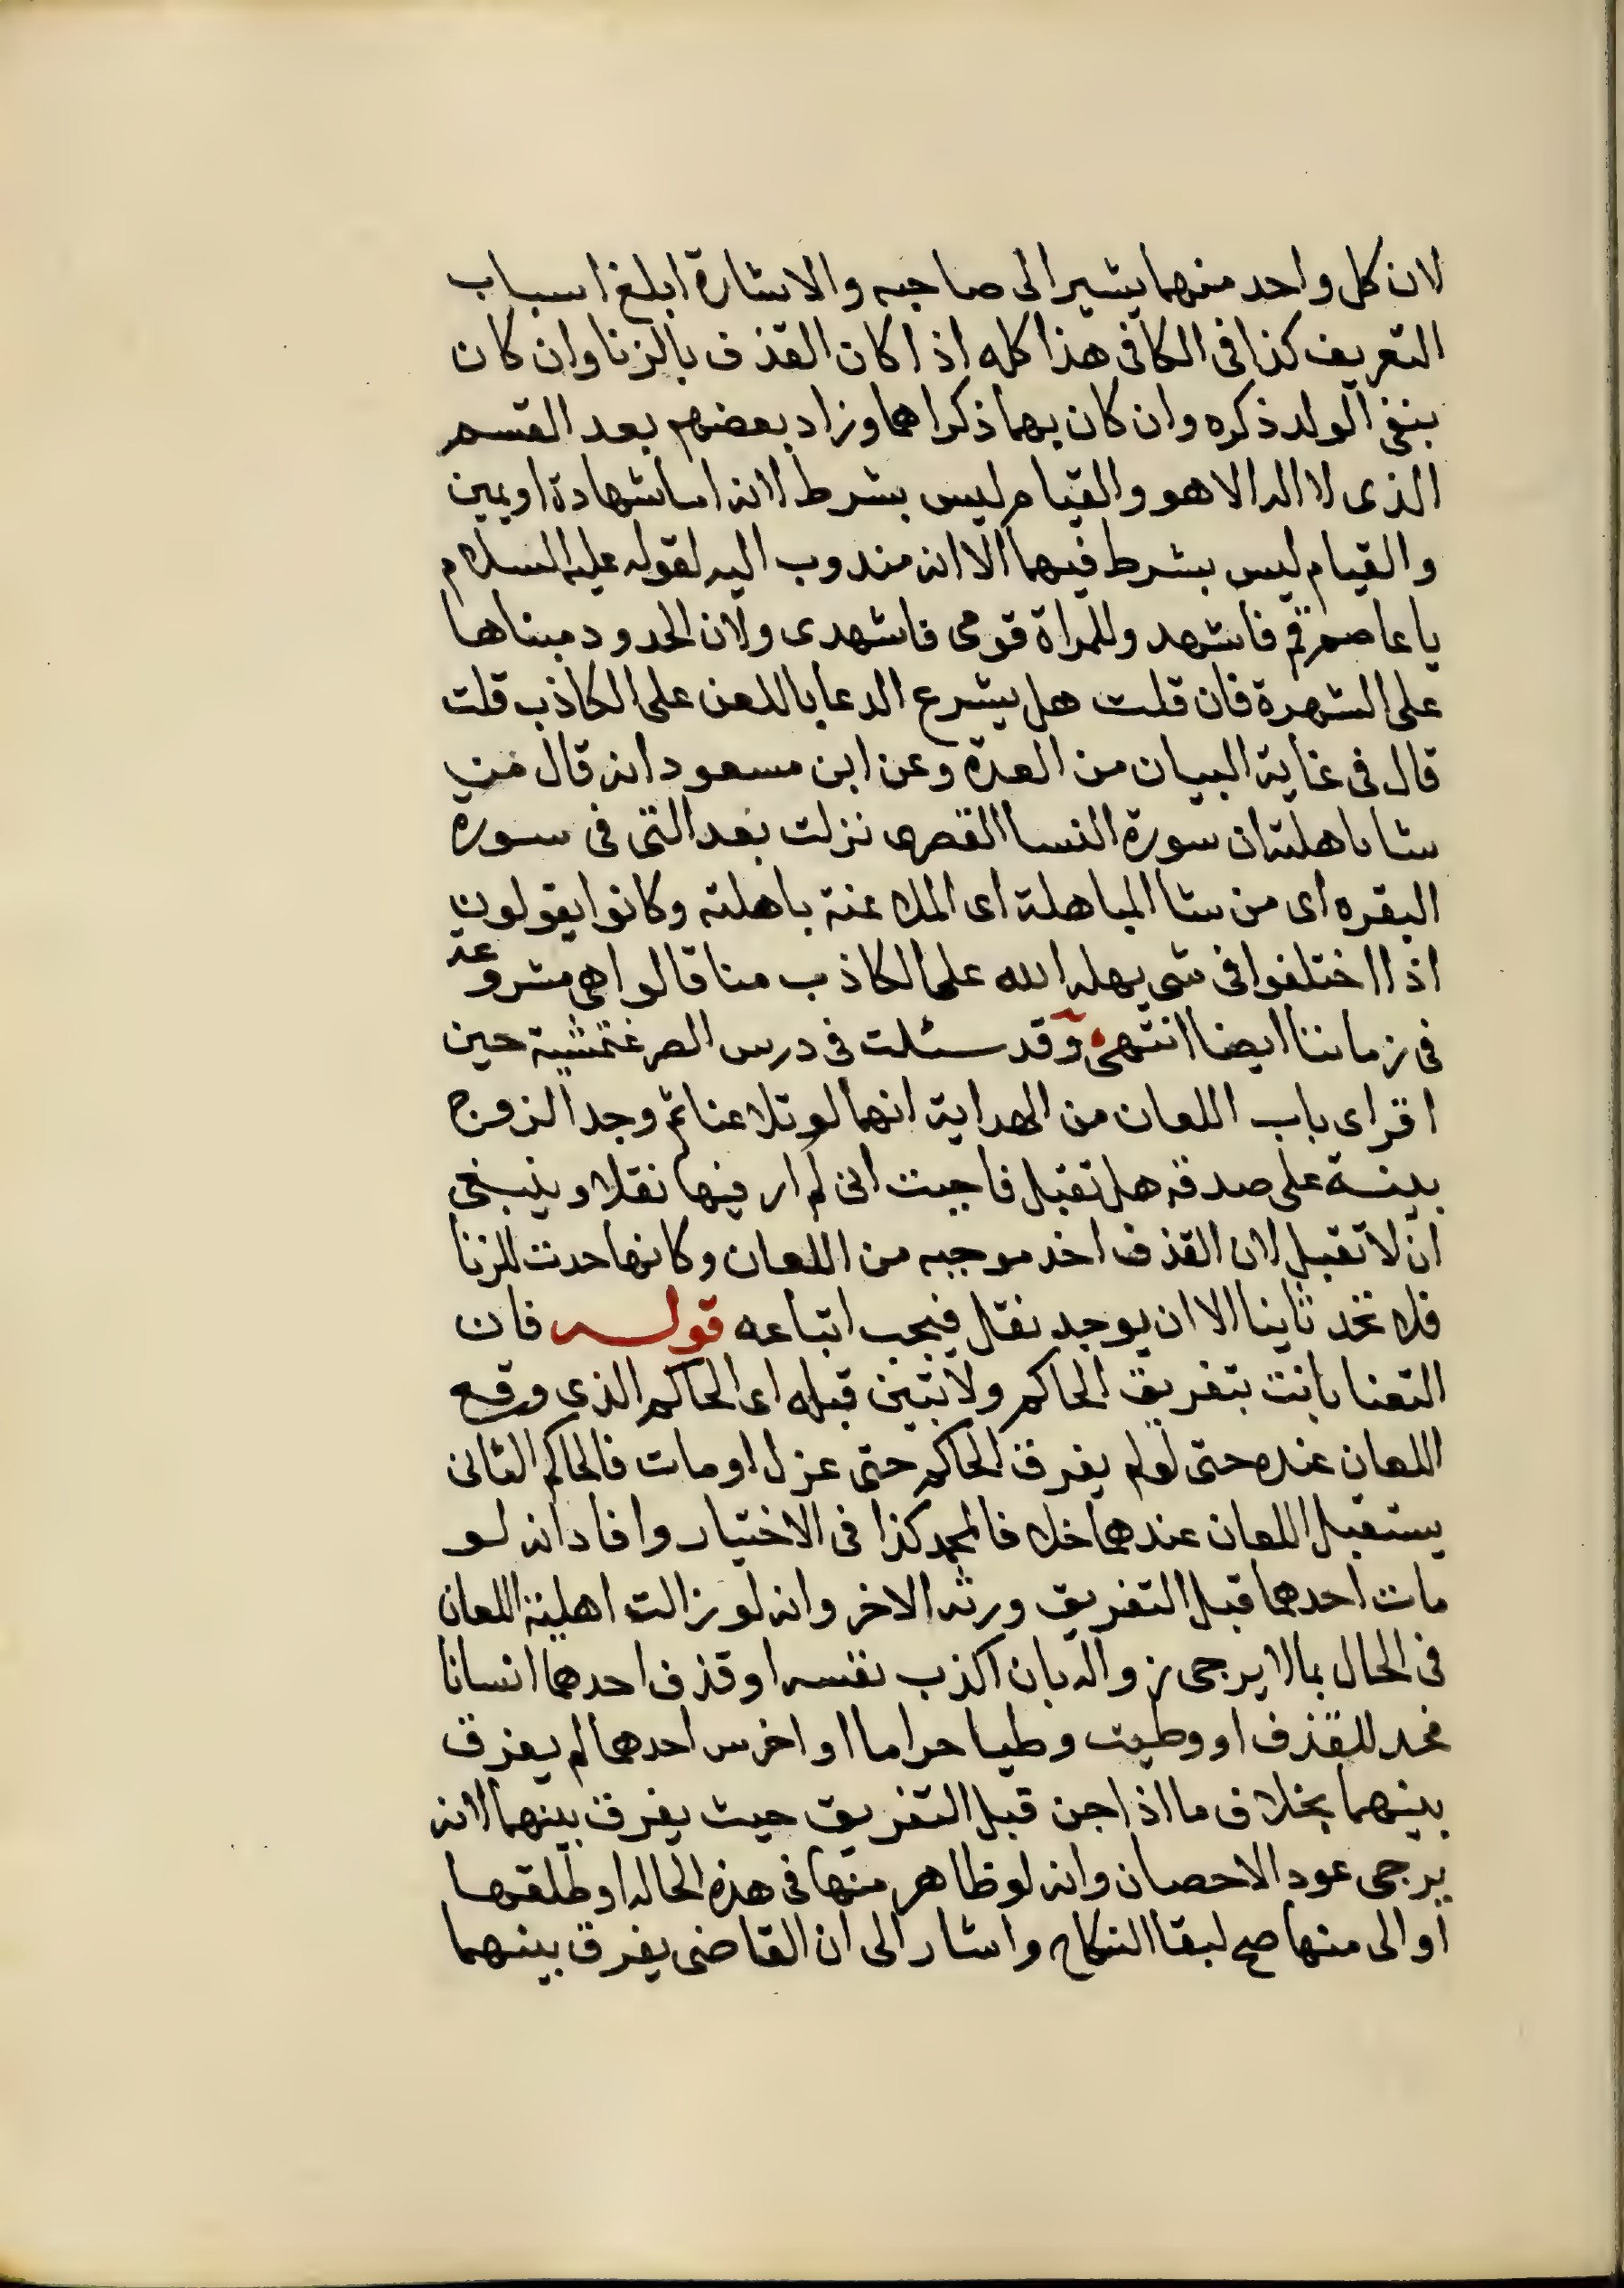 لان كل واحد منهما يشير الى صاحبه والاشارة ابلغ اسباب
التعريف كذا فى الكافى هذا كله اذا كان القذف بالزنا وان كان
بنفى الولد ذكره وان كان بهما ذكراهما وزاد بعضهم بعد القسم
الذى لا اله الا هو والقيام ليس بشرط لانه اما شهادة او يمين
والقيام ليس بشرط فيهما الا انه مندوب اليه لقوله عليه السلام
يا عاصم قم فاشهد وللمراة قومى فاشهدى ولان الحدود مبناها
على الشهرة فان قلت هل يشرع الدعا باللعن على الكاذب قلت
قال فى غاية البيان من العدة وعن ابن مسعود انه قال من
شا باهلته ان سورة النسا القصرى نزلت بعد التى فى سورة
البقره اى من شا المباهلة اى الملاعنة باهلته وكانوا يقولون
اذا اختلفوا فى شى بهلة الله على الكاذب منا قالوا هى مشروعة
فى زماننا ايضا انتهى وقد سئلت فى درس الصرغتمشية حين
اقراى باب اللعان من الهداية انهما لو تلاعنا ثم وجد الزوج
بينة على صدقه هل تقبل فاجبت انى لم ار فيها نقلا وينبغى
ان لا تقبل لان القذف اخذ موجبه من اللعان وكانها حدت للزنا
فلا تحد ثانيا الا ان يوجد نقل فيجب اتباعه قوله فان
التعنا بانت بتفريق الحاكم ولا تبين قبله اى الحاكم الذى وقع
اللعان عنده حتى لو لم يفرق الحاكم حتى عزل او مات فالحاكم الثانى
يستقبل اللعان عندهما خلافا لمحمد كذا فى الاختيار وافاد انه لو
مات احدهما قبل التفريق ورثه الاخر وانه لو زالت اهلية اللعان
فى الحال بما لا يرجى زواله بان اكذب نفسه او قذف احدهما انسانا
فحد للقذف او وطيت وطيا حراما او اخرس احدهما لم يفرق
بينهما بخلاف ما اذا جن قبل التفريق حيث يفرق بينهما لانه
يرجى عود الاحصان وانه لو ظاهر منها فى هذه الحاله او طلقها
او الى منها صح لبقا النكاح واشار الى ان القاضى يفرق بينهما